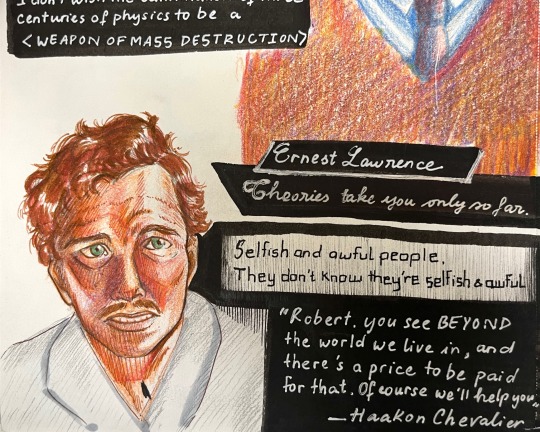 I don't wish the culmination of three
centuries of physics to be a
<WEAPON OF MASS DESTRUCTION>
Ernest Lawrence
Theories take you only so far.
Selfish and awful people.
They don't know they're selfish & awful
"Robert, you see BEYOND
the world we live in, and
there's a price to be paid
for that. Of course we'll help you"
—Haakon Chevalier